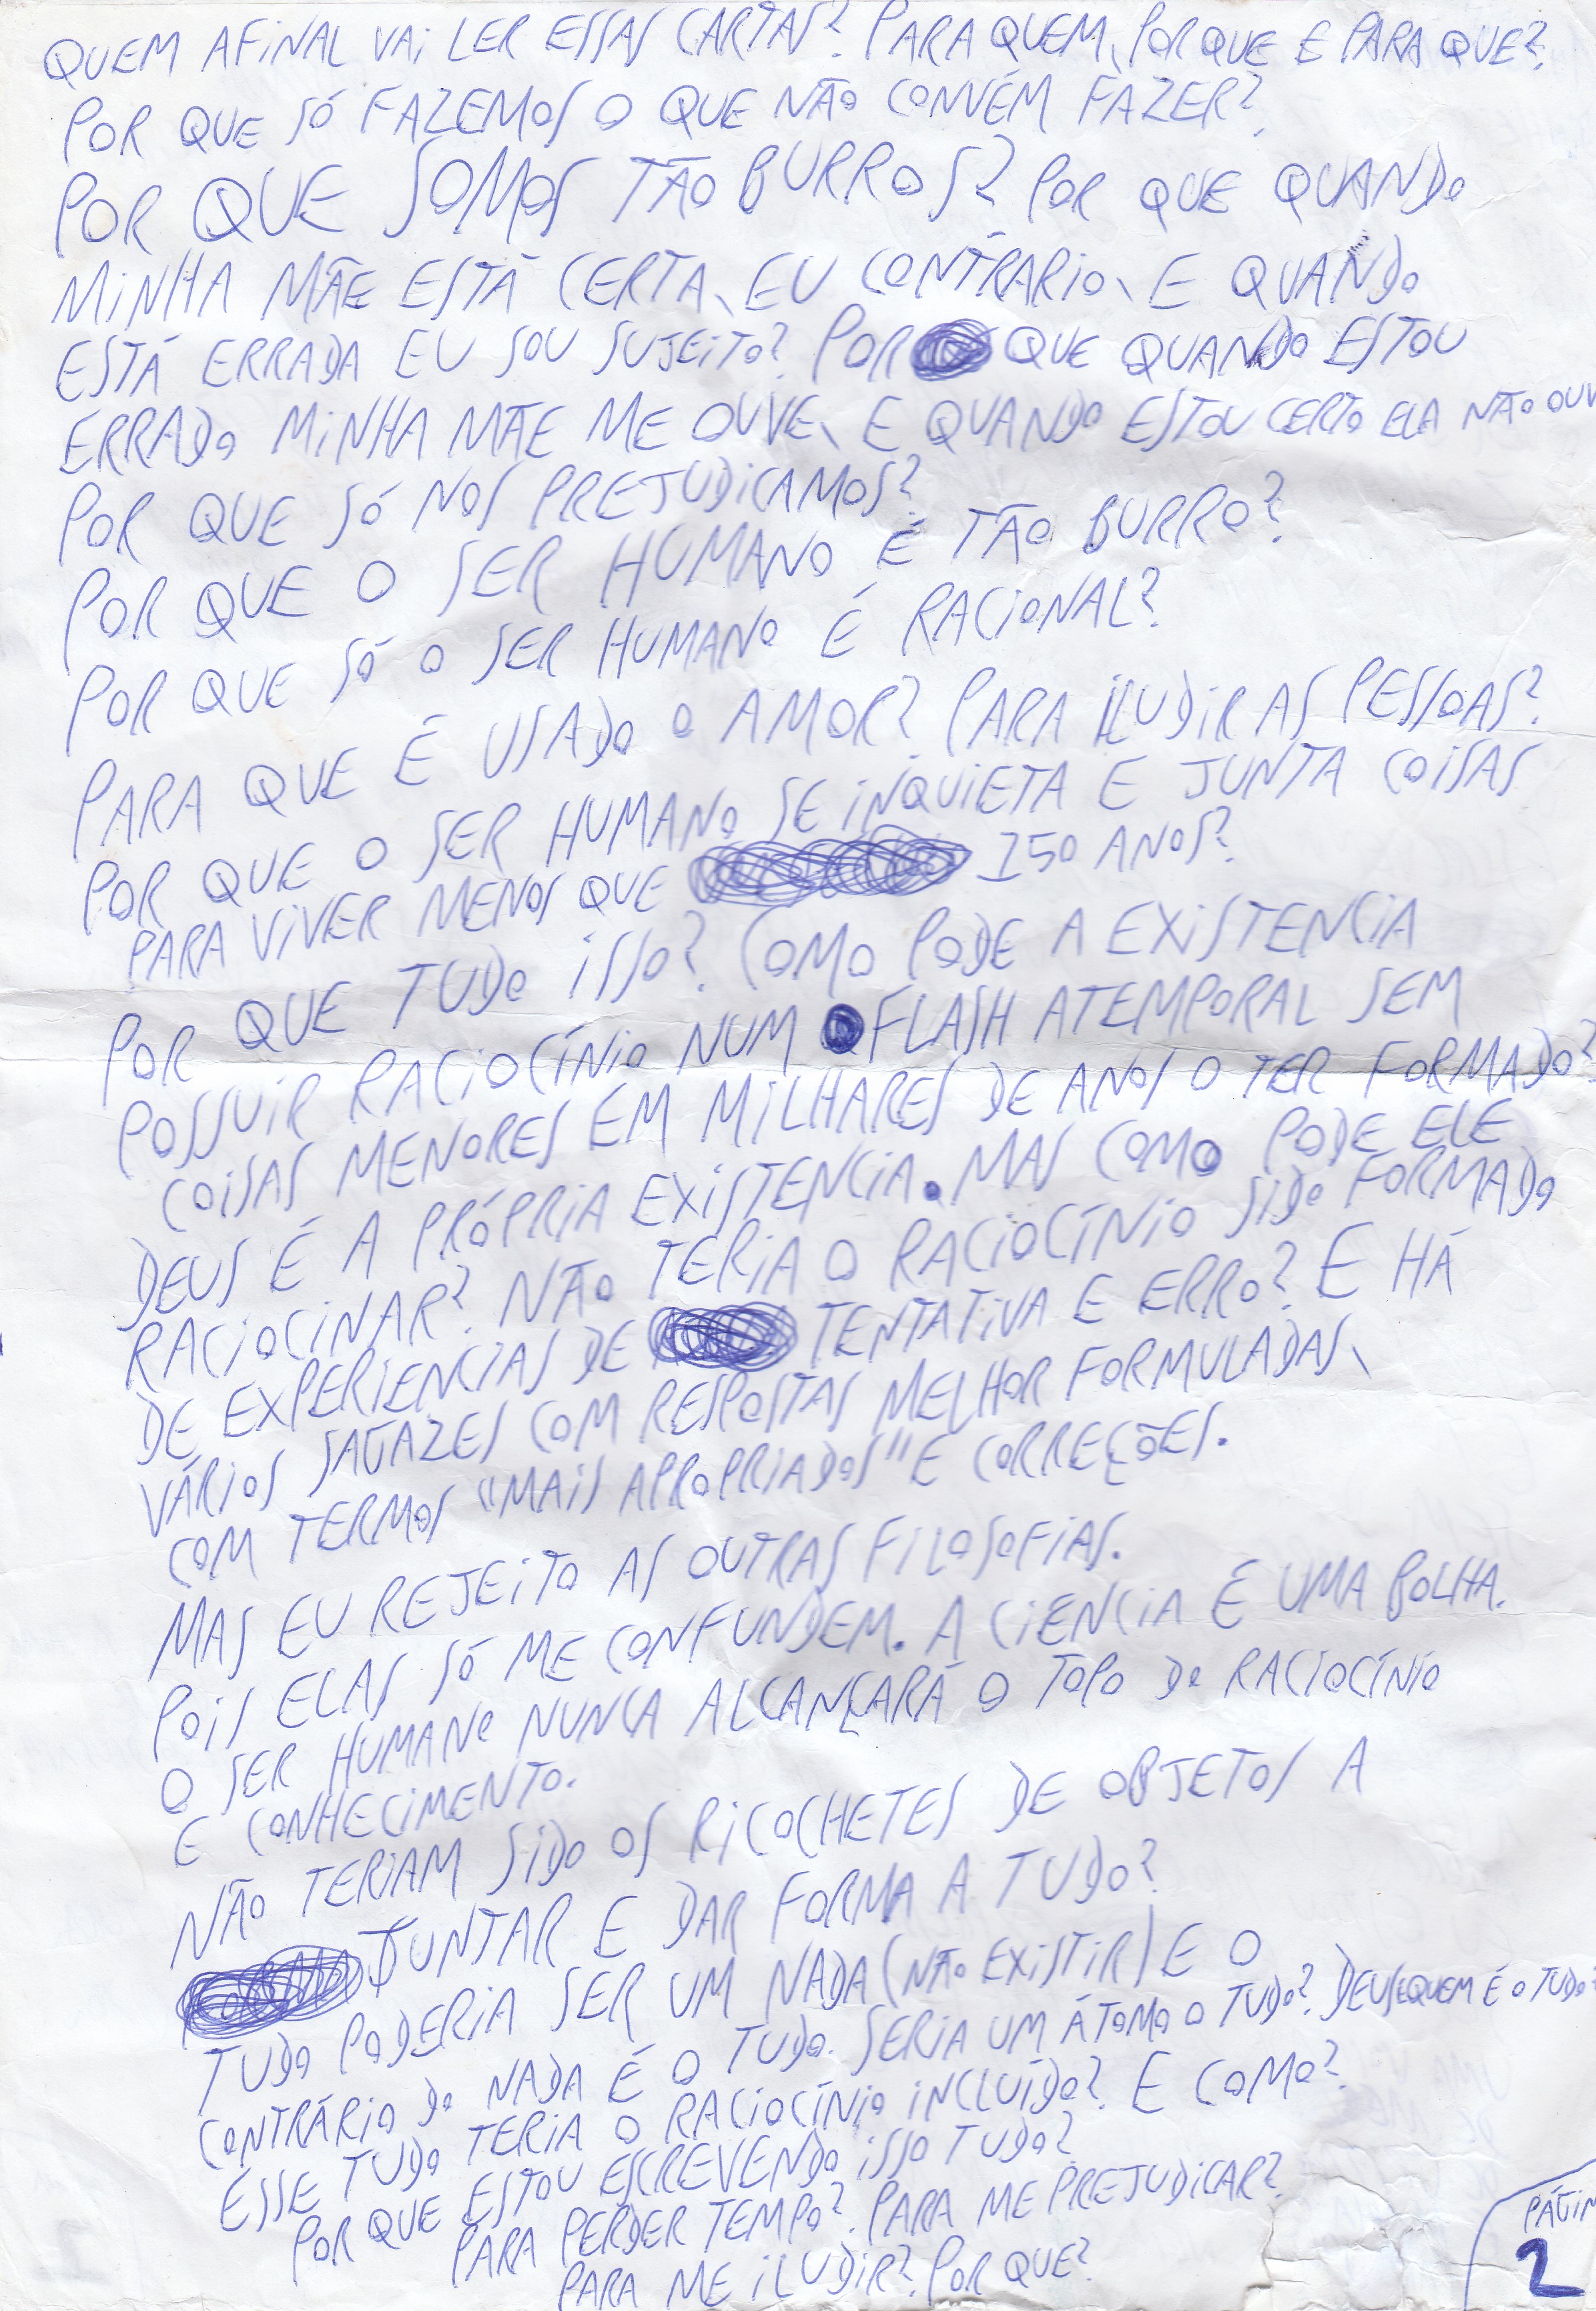 QUEM AFINAL VAI LER ESSAS CARTAS? PARA QUEM, POR QUE E PARA QUE?
POR QUE SÓ FAZEMOS O QUE NÃO CONVÉM FAZER?
POR QUE SOMOS TÃO BURROS? POR QUE QUANDO
MINHA MÃE ESTÁ CERTA, EU CONTRARIO, E QUANDO
ESTÁ ERRADA EU SOU SUJEITO? POR QUE QUANDO ESTOU
ERRADO MINHA MÃE ME OUVE, E QUANDO ESTOU CERTO ELA NÃO OUV
POR QUE SÓ NOS PREJUDICAMOS?
POR QUE O SER HUMANO É TÃO BURRO?
POR QUE SÓ O SER HUMANO É RACIONAL?
PARA QUE É USADO O AMOR? PARA ILUDIR AS PESSOAS?
POR QUE O SER HUMANO SE INQUIETA E JUNTA COISAS
PARA VIVER MENOS QUE 150 ANOS?
POR QUE TUDO ISSO? COMO PODE A EXISTENCIA
POSSUIR RACIOCÍNIO NUM FLASH ATEMPORAL SEM
COISAS MENORES EM MILHARES DE ANOS O TER FORMADO?
DEUS É A PRÓPRIA EXISTENCIA. MAS COMO PODE ELE
RACIOCINAR? NÃO TERIA O RACIOCÍNIO SIDO FORMADO
DE EXPERIENCIAS DE TENTATIVA E ERRO? E HÁ
VÁRIOS SAGAZES COM RESPOSTAS MELHOR FORMULADAS,
COM TERMOS "MAIS APROPRIADOS" E CORREÇÕES.
MAS EU REJEITO AS OUTRAS FILOSOFIAS.
POIS ELAS SÓ ME CONFUNDEM. A CIENCIA É UMA BOLHA.
O SER HUMANO NUNCA ALCANÇARÁ O TOPO DO RACIOCÍNIO
E CONHECIMENTO.
NÃO TERIAM SIDO OS RICOCHETES DE OBJETOS A
JUNTAR E DAR FORMA A TUDO?
TUDO PODERIA SER UM NADA (NÃO EXISTIR) E O
CONTRÁRIO DO NADA É O TUDO. SERIA UM ÁTOMO O TUDO? DEUS E QUEM É O TUDO?
ESSE TUDO TERIA O RACIOCÍNIO INCLUÍDO? E COMO?
POR QUE ESTOU ESCREVENDO ISSO TUDO?
PARA PERDER TEMPO? PARA ME PREJUDICAR?
PARA ME ILUDIR? POR QUE?
PÁGIN
2